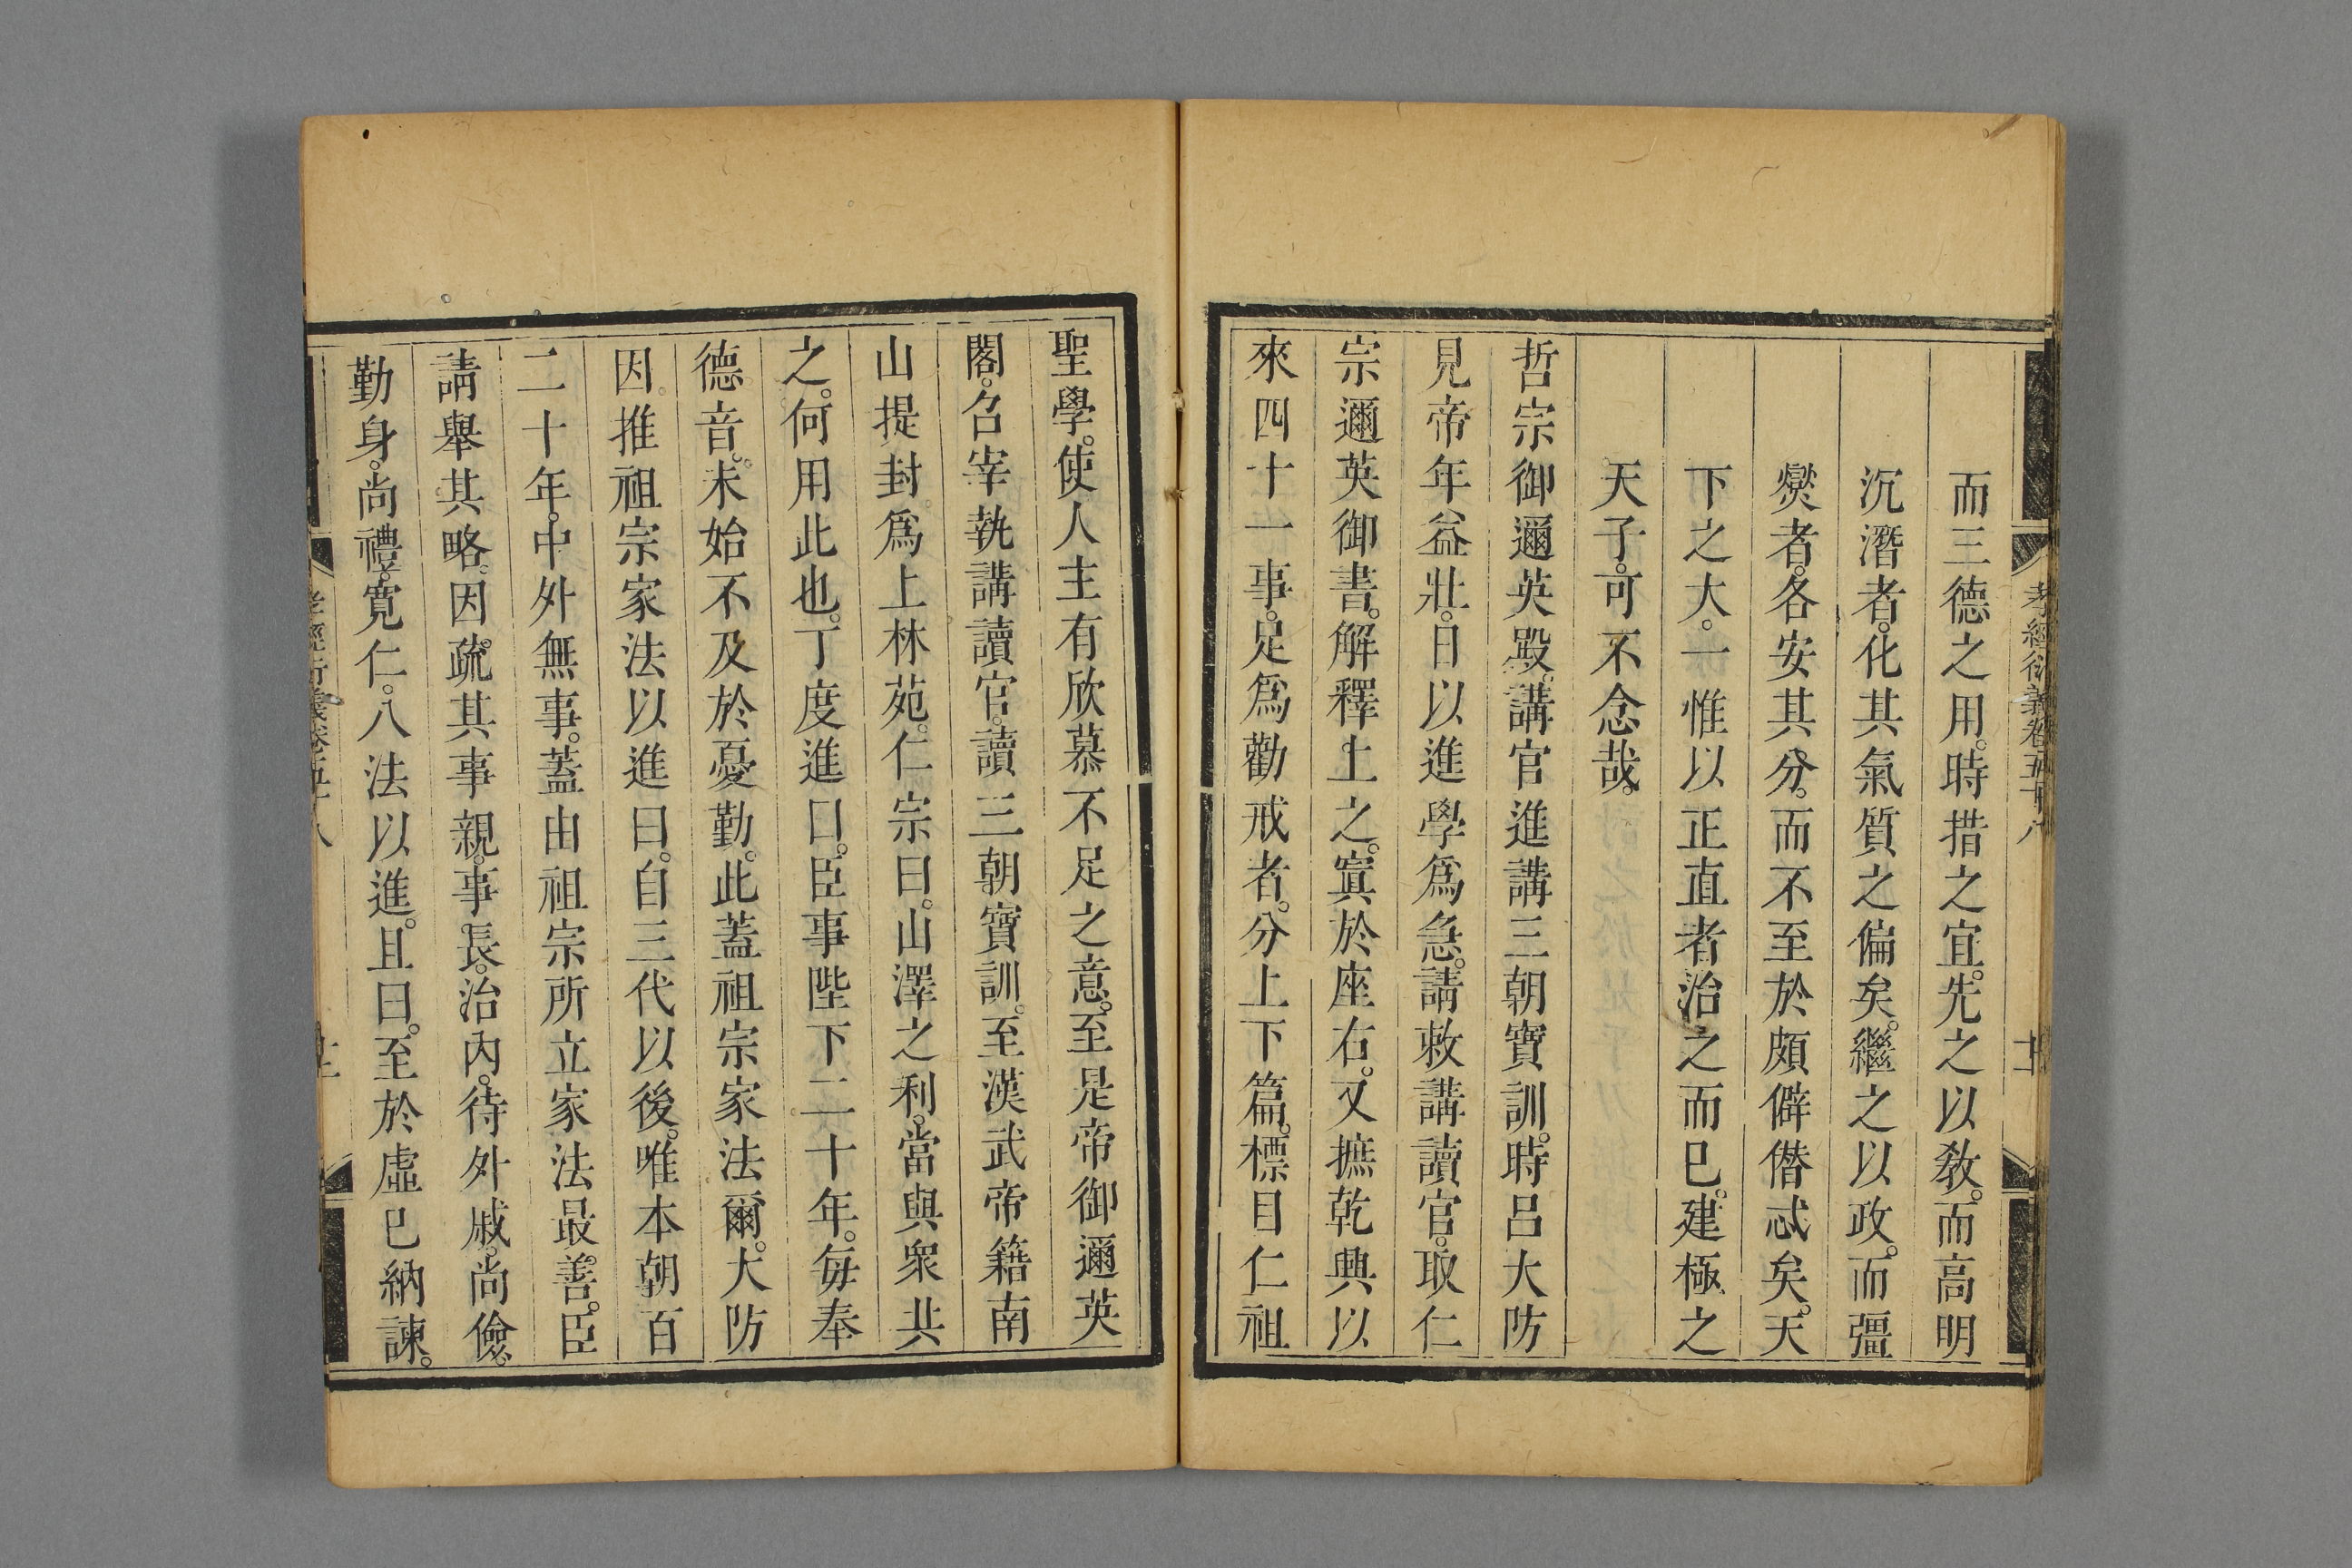 而三德之用。時措之宜。先之以教。而高明
沉潛者。化其氣質之偏矣。繼之以政。而彊
燮者。各安其分。而不至於頗僻僭忒矣。天
下之大。一惟以正直者治之而已。建極之
天子。可不念哉。
哲宗御邇英殿。講官進講三朝寶訓。時呂大防
見帝年益壯。日以進學爲急。請敕講讀官。取仁
宗邇英御書。解釋上之。寘於座右。又摭乾興以
來四十一事。足爲勸戒者。分上下篇。標目仁祖
聖學。使人主有欣慕不足之意。至是帝御邇英
閣。召宰執講讀官。讀三朝寶訓。至漢武帝籍南
山提封爲上林苑。仁宗曰。山澤之利。當與衆共
之。何用此也。丁度進曰。臣事陛下二十年。每奉
德音。未始不及於憂勤。此蓋祖宗家法爾。大防
因推祖宗家法以進曰。自三代以後。唯本朝百
二十年。中外無事。蓋由祖宗所立家法最善。臣
請舉其略。因疏其事親。事長。治內。待外戚。尚儉。
勤身。尚禮。寬仁。八法以進。且曰。至於虛已納諫。
孝經衍義卷五十八